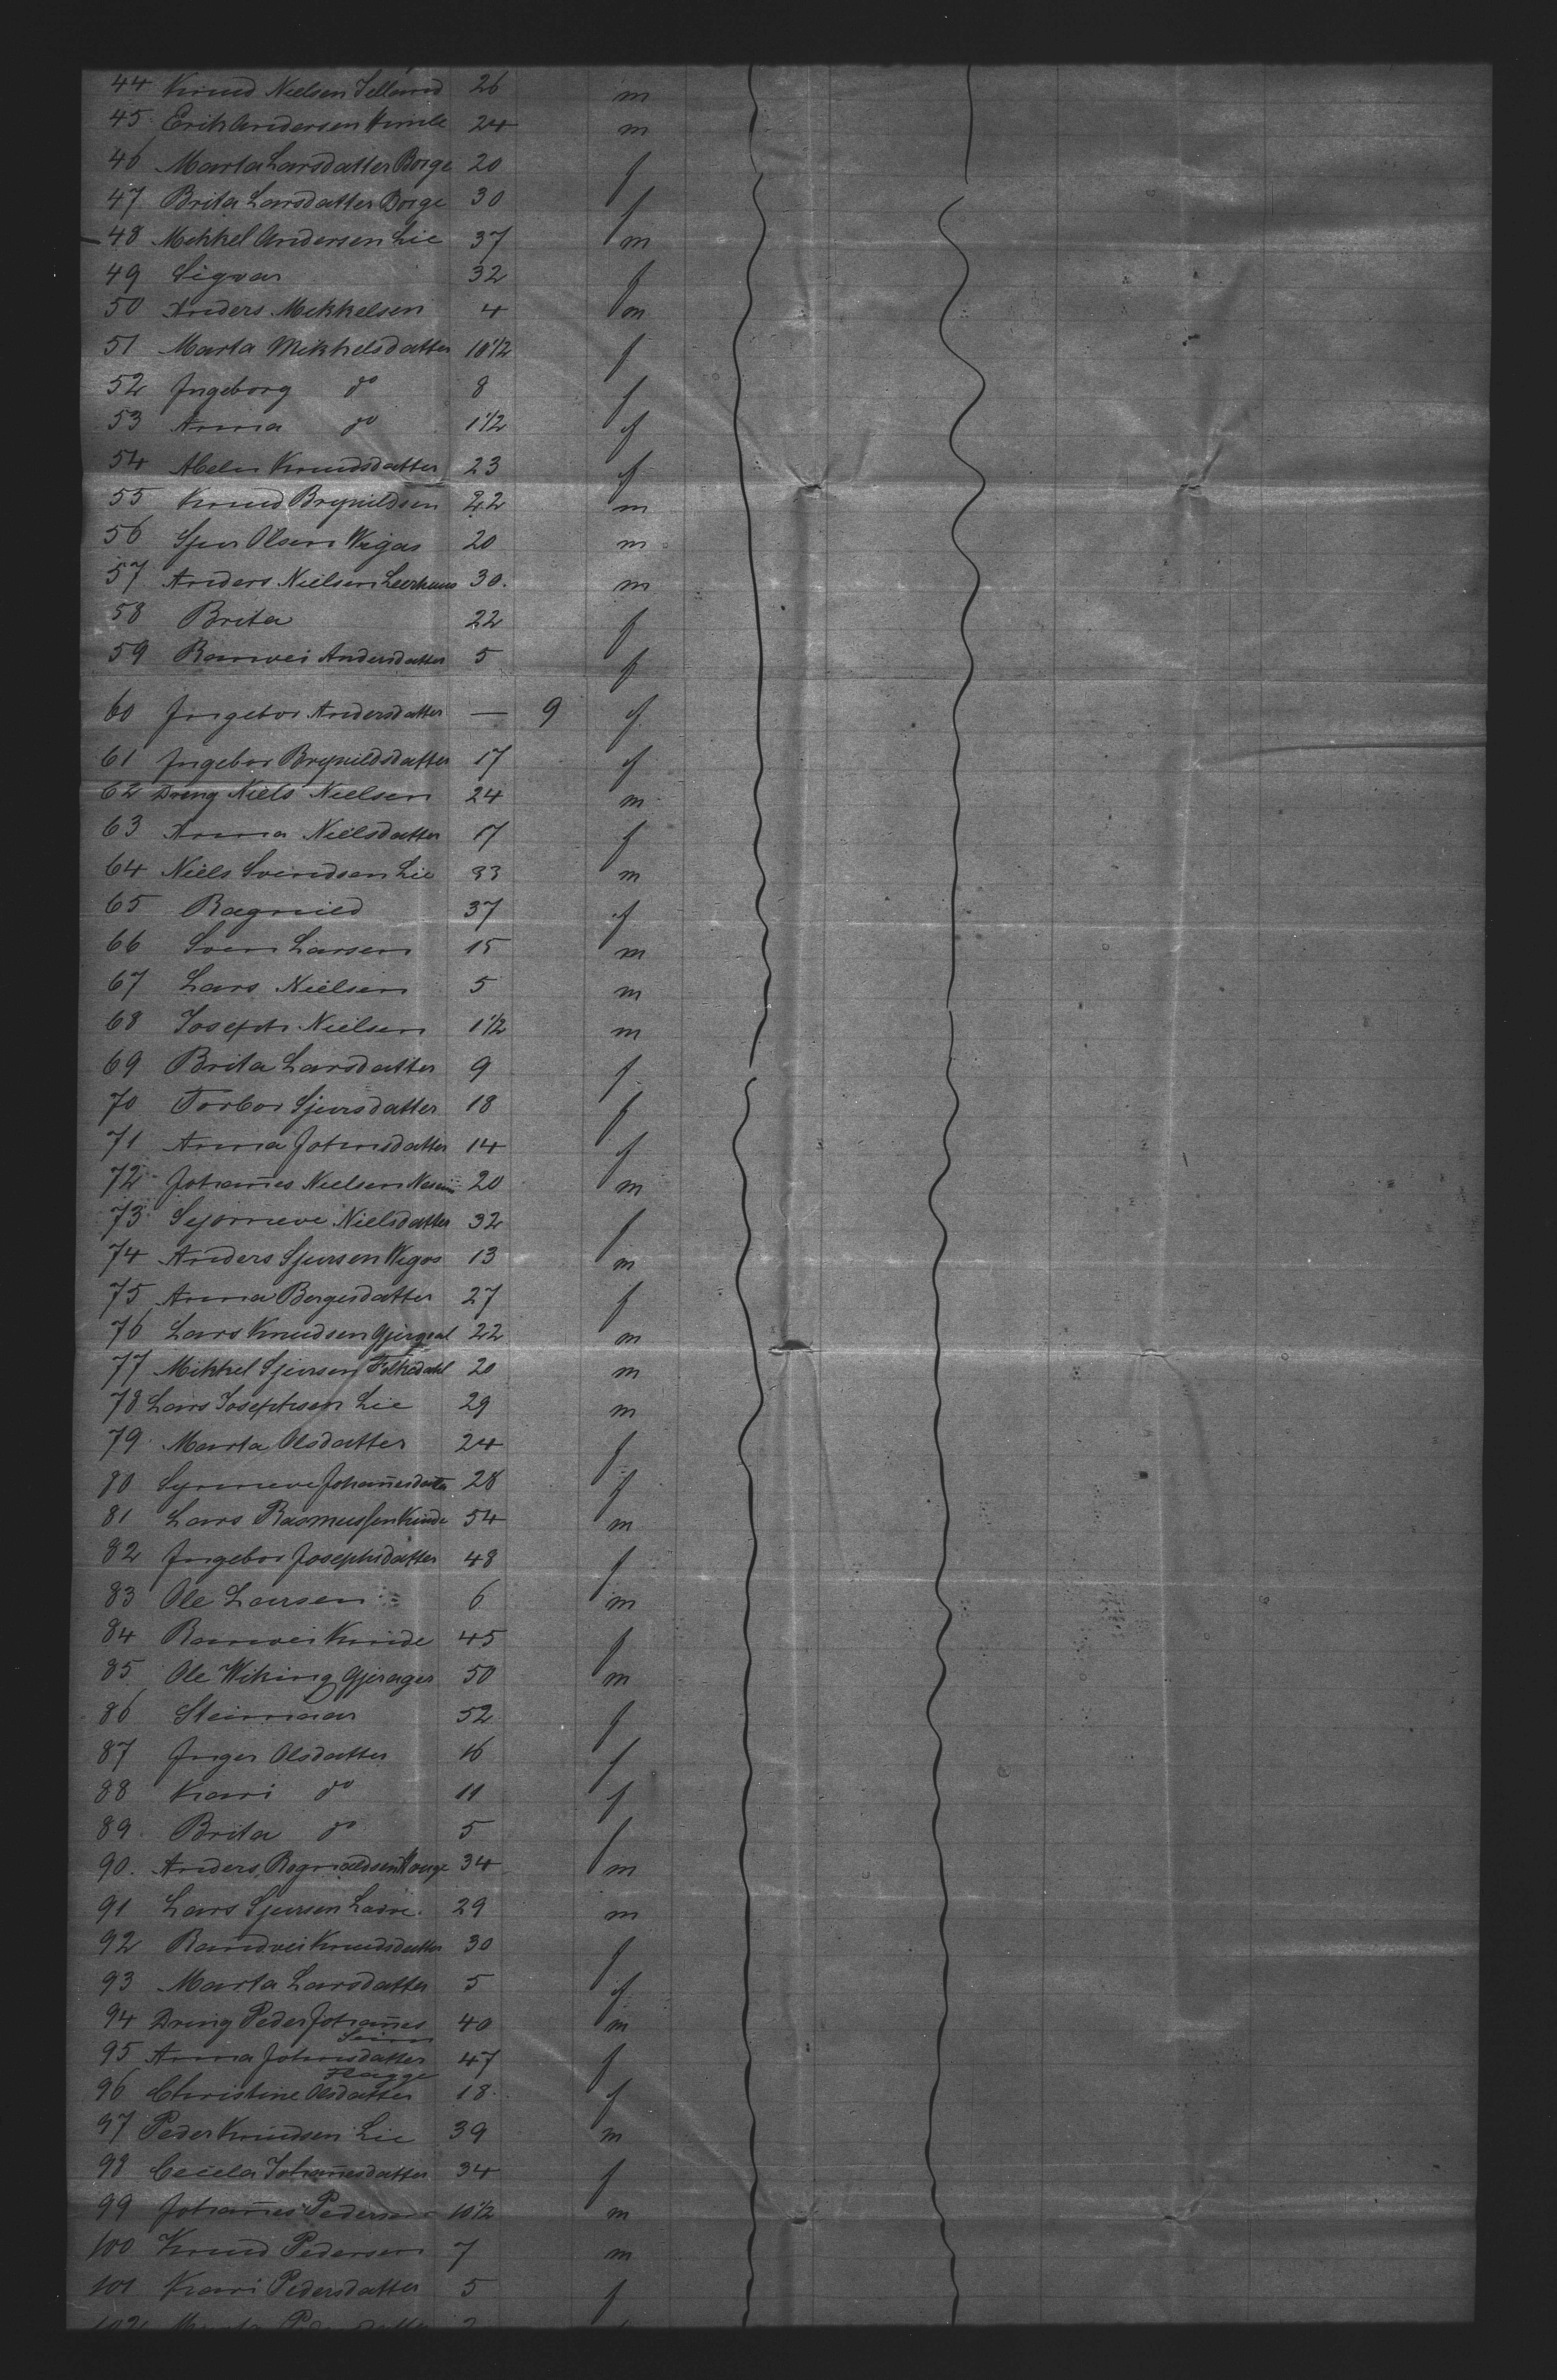 44 Knud Nielsen Selland 26 m
45 Erik Andersen Kinde 24 m
46 Marta Larsdatter Borge 20 f
47 Brita Larsdatter Borge 30 f
48 Mekkel Andersen Lie 37 m
49 Sigvar 32 f
50 Anders Mekkelsen 4 m
51 Marta Mikkelsdatter 10½ f
52 Ingeborg do 8 f
53 Anna do 1½ f
54 Abelu Knudsdatter 23 f
55 Knud Brynildsen 22 m
56 Sjur Olsen Wigas 20 m
57 Anders Nielsen 30. m
58 Brita 22 f
59 Ranvei Andersdatter 5 f
60 Ingebor Andersdatter — 9 f
61 Ingebor Brynildsdatter 17 f
62 Dreng Niels Nielsen 24 m
63 Anna Nielsdatter 17 f
64 Niels Svendsen Lie 33 m
65 Ragnild 37 f
66 Sven Larsen 15 m
67 Lars Nielsen 5 m
68 Joseph Nielsen 1½ m
69 Brita Larsdatter 9 f
70 Torbor Sjursdatter 18 f
71 Anna Johnsdatter 14 f
72 Johannes Nielsen 20 m
73 Sejorneve Nielsdatter 32 f
74 Anders Sjursen Wigos 13 m
75 Anna Borgersdatter 27 f
76 Lars Knudsen 22 m
77 Mikkel Sjursen Folkedahl 20 m
78 Lars Josephsen Lie 29 m
79 Marta Olsdatter 24 f
80 Synneve Johannesdatter 28 f
81 Lars Rasmussen Kinde 54 m
82 Ingebor Josephsdatter 48 f
83 Ole Larsen 6 m
84 Ranvei Kinde 45 f
85 Ole Wiking Gjerager 50 m
86 Steinvaar 52 f
87 Inger Olsdatter 16 f
88 Kari do 11 f
89 Brita do 5 f
90. Anders Rognaldsen Hauge 34 m
91 Lars Sjursen Laine. 29 m
92 Randvei Knudsdatter 30 f
93 Marta Larsdatter 5 f
94 Dreng Peder Johannes 40 m
Seim
95 Anna Johnsdatter 47 f
Hagge
96 Christine Olsdatter 18 f
97 Peder Knudsen Lie 39 m
98 Cecela Johannesdatter 34 f
99 Johannes Pedersen 10½ m
100 Knud Pedersen 7 m
101 Kari Pedersdatter 5 f
102